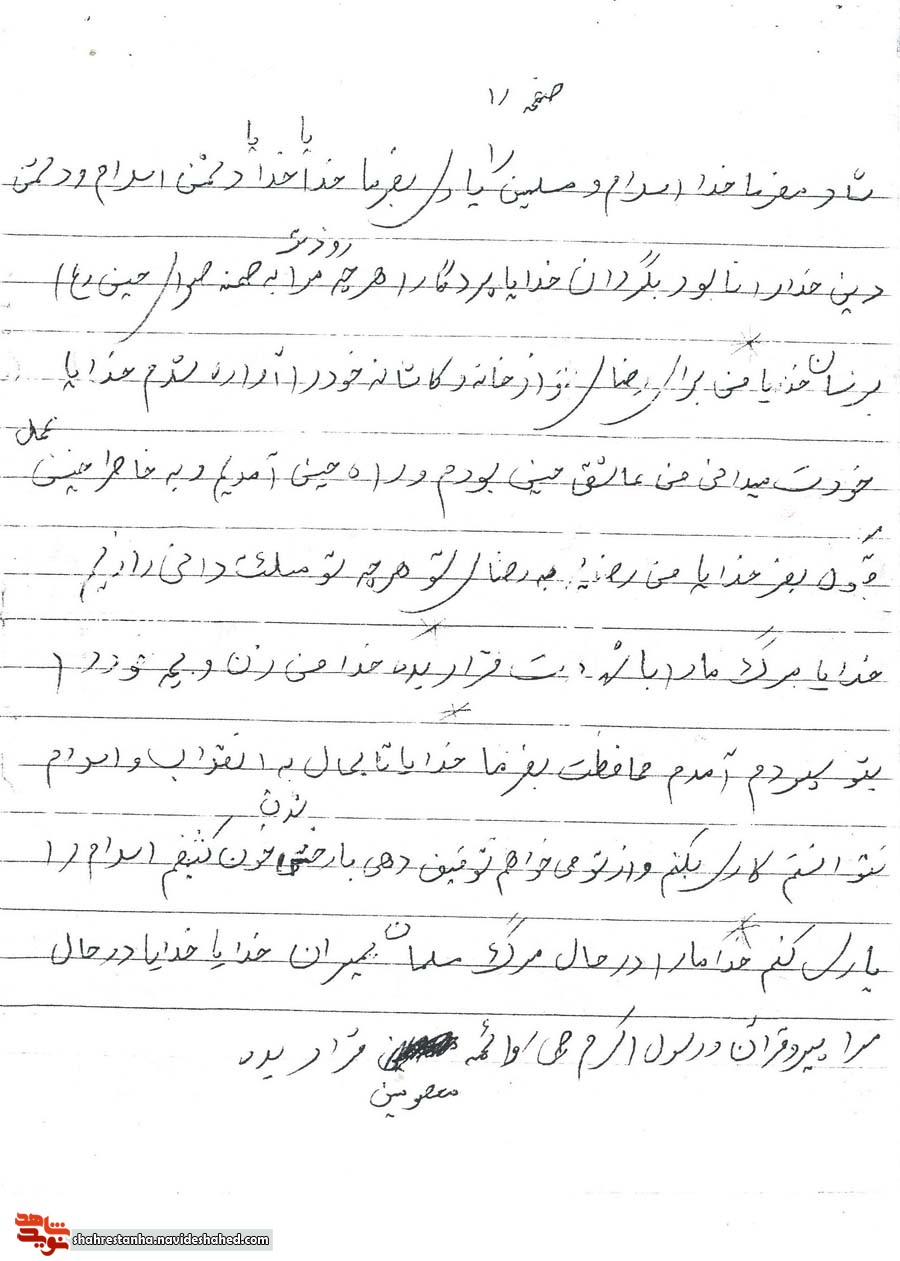 صفحه ۱
شاد بفرما خدا اسلام و مسلمین را یاری بفرما خدایا خدایا دشمن اسلام و دشمن
دین خدا را نابود بگردان خدایا پروردگارا هر چه زودتر مرا به صحنه صحرای حسین (ع)
برسان خدایا من برای رضای تو از خانه و کاشانه خود را آواره شدم خدایا
خودت میدانی من عاشق حسین بودم و راه حسین آمدیم و به خاطر حسین
قبول بفرما خدایا من به رضای تو هر چه تو صلاح دانی راضیم
خدایا مرگ ما را با شهادت قرار بده خدا من زن و بچه خود را
بتو سپردم آمدم محافظت بفرما خدایا تا بحال به انقلاب و اسلام
نتوانستم کاری بکنم و از تو می خواهم توفیق دهی با ریختن خون کثیفم اسلام را
یاری کنم خدا ما را در حال مرگ مسلمان بمیران خدایا خدایا در حال
مرا پیرو قرآن و رسول اکرم (ص) و ائمه معصومین قرار بده
نوید شاهد
shahrestanha.navideshahed.com